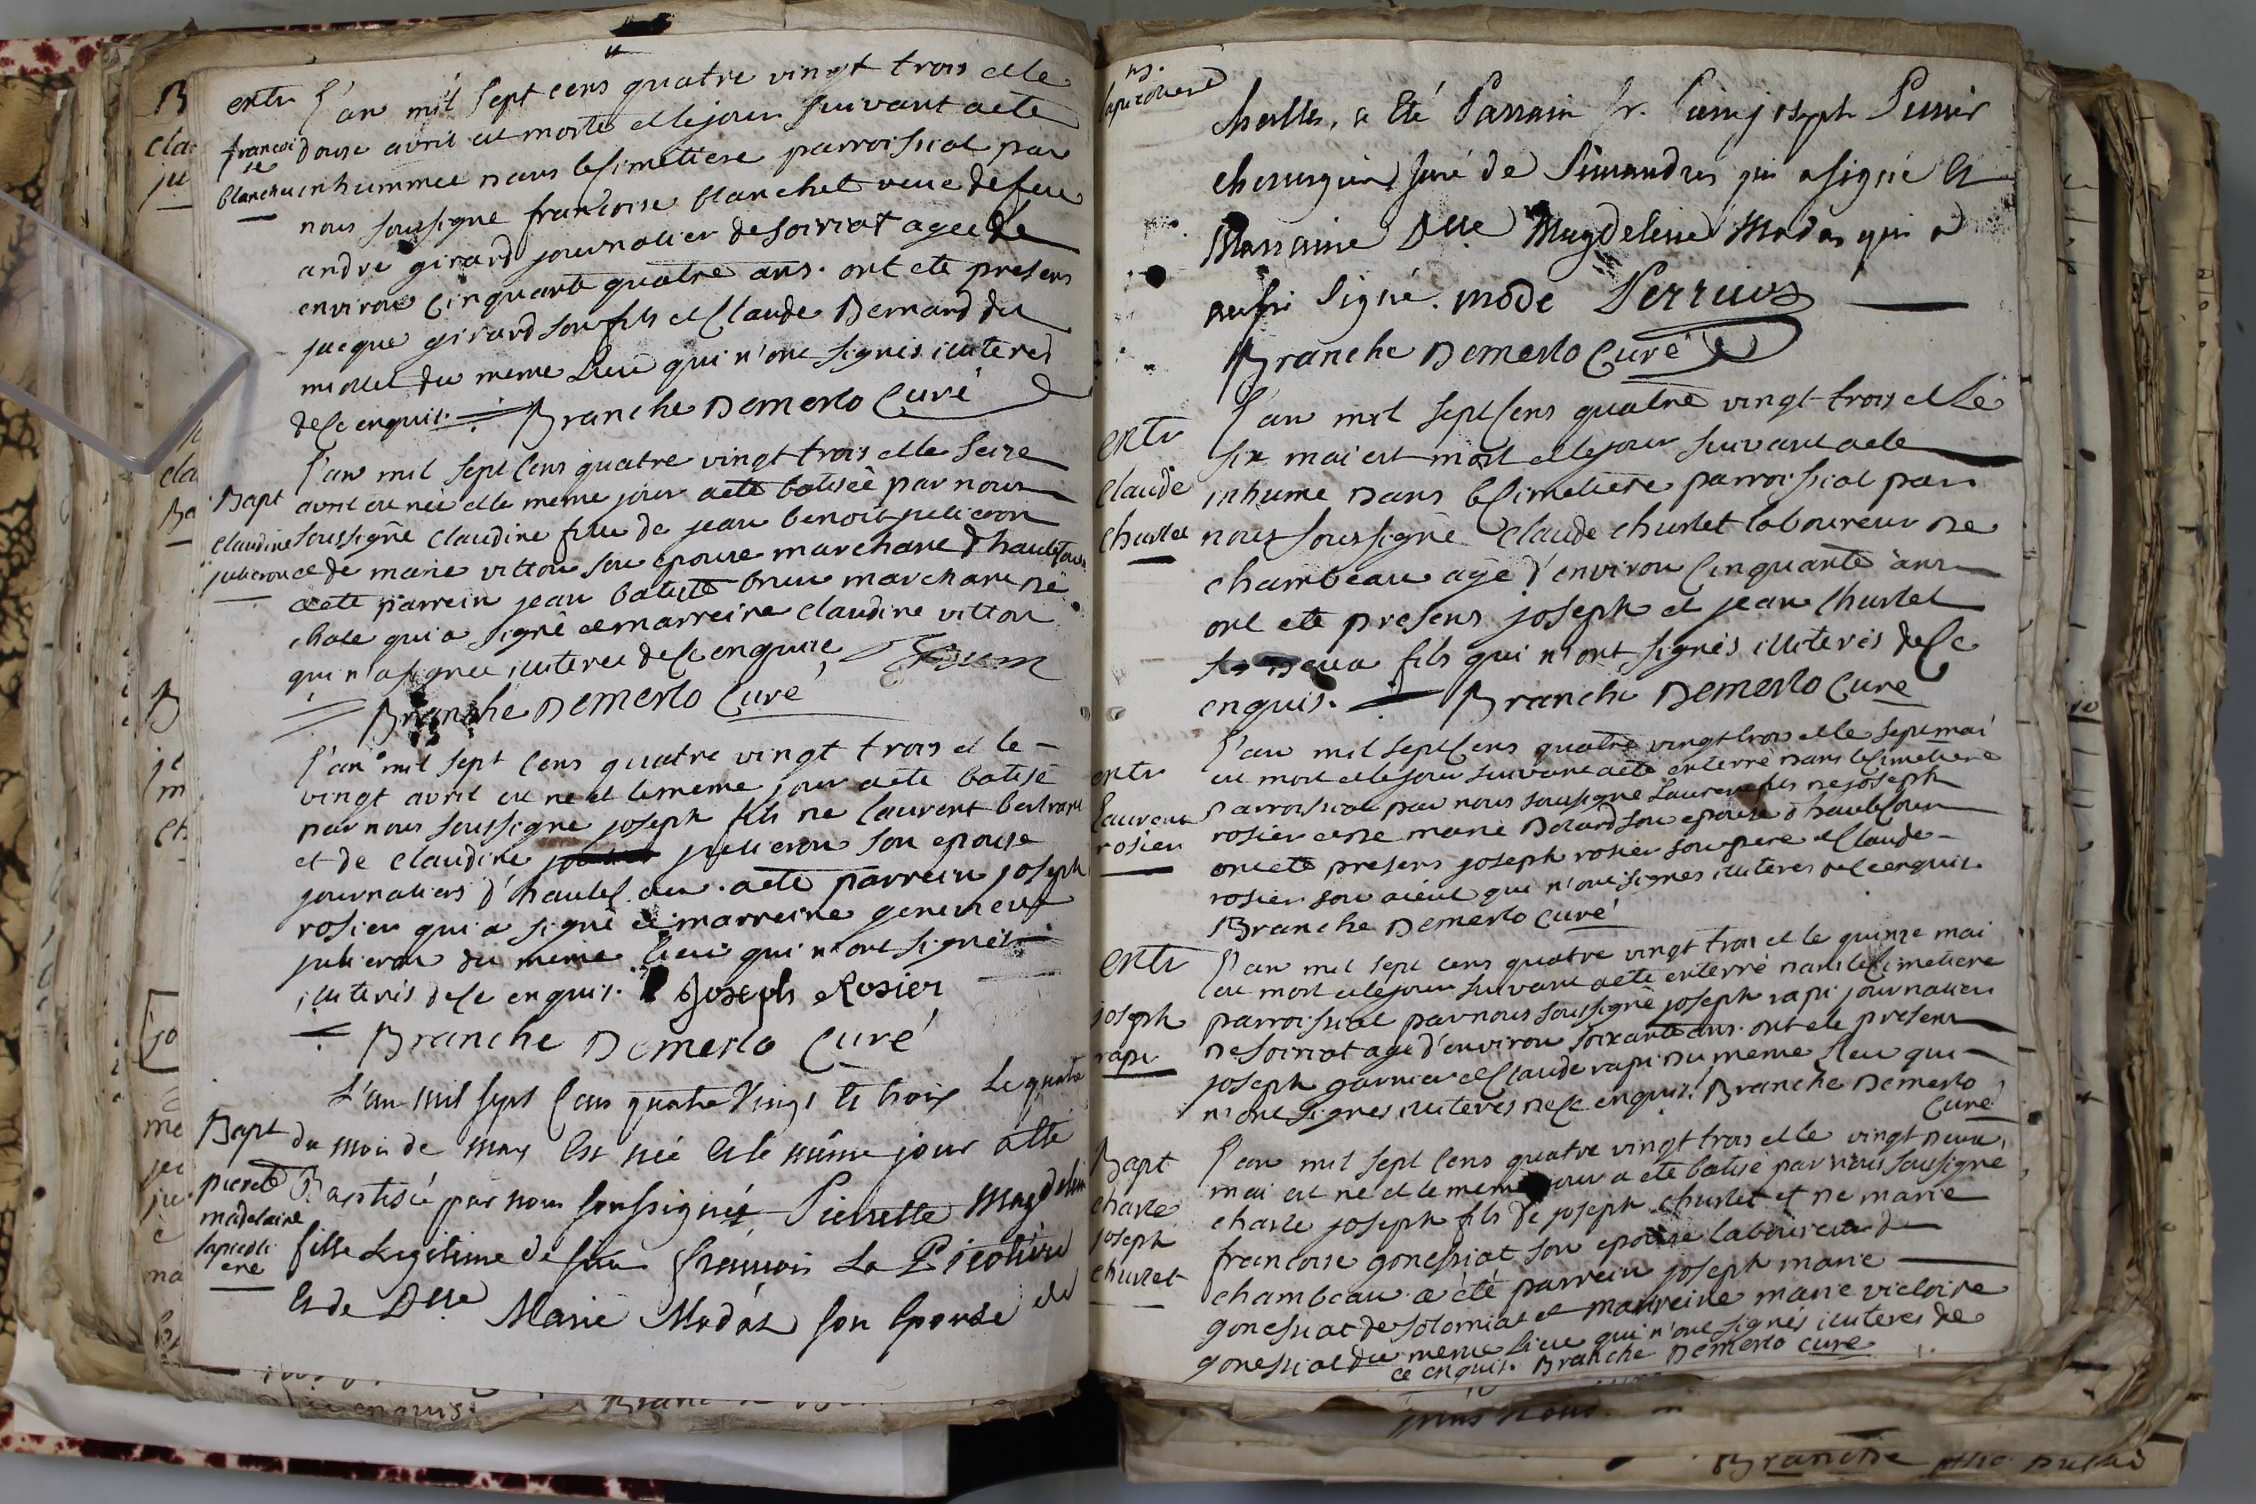 entr
francoi
se
blanchet
l'an mil sept cens quatre vingt trois et le
douse avril est morte et le jour suivant a ete
inhummee dans le simetiere parroissial par
nous soussigne francoise blanchet veuve de feu
andre girard journalier de soiriat agee de
environ cinquante quatre ans. ont ete presens
jacque girard son fils et Claude Bernard du
miollet du meme lieu qui n'ont signés illiteres
de ce enquis. Branche Demerlo Curé
Bapt
claudine
julieron
l'an mil sept cens quatre vingt trois et le seize
avril est née et le meme jour a ete batisée par nous
soussigné claudine fille de jean benoit julieron
et de marie vitton son epouse marchant d'hautecour
a ete parrein jean batiste brun marchant de
chale qui a signé et marreine claudine vitton
qui n'a signee illiteree de ce enquise Brun
Branche Demerlo Curé
l'an mil sept cens quatre vingt trois et le
vingt avril est ne et le meme jour a ete batisé
par nous soussigne joseph fils de laurent bertrand
et de claudine julieron son epouse
journaliers d'hautecour. a ete parrein joseph
rosier qui a signé et marreine genevieve
julieron du meme lieu qui n'ont signés
illiterés de ce enquis. Joseph Rosier
Branche Demerlo Curé
Bapt
pierete
madelaine
lapicoti
ere
L'an mil sept Cens quatre Vingt et trois Le quatre
du mois de may Est née Et le même jour a été
Baptisée par nous soussigné Pierrette Magdelein
fille Legitime de François La Picotiere
Et de Dlle Marie Modas son Epouse de
lapicotiere
challes, a Eté Parrain Sr. joseph Perrier
chirurgien juré de Simandres qui a signé Et
Marraine Dlle Magdeleine Modas qui a
aussi signé. mode Perrier
Branche Demerlo Curé
entr
claude
churlet
l'an mil sept cens quatre vingt trois et le
six mai est mort et le jour suivant a ete
inhume dans le simetiere parroissial par
nous soussigné Claude churlet laboureur de
chambeau agé d'environ cinquante ans
ont ete presens joseph et jean churlet
ses deux fils qui n'ont signés illiterés de ce
enquis. Branche Demerlo Curé
entr
laurent
rosier
l'an mil sept cens quatre vingt trois et le sept mai
est mort et le jour suivant a ete enterré dans le simetiere
parroissial par nous soussigne laurent fils de joseph
rosier et de marie Dolard son epouse d'hautecour
ont ete presens joseph rosier son pere et Claude
rosier son aieul qui n'ont signes illiteres de ce enquis.
Branche Demerlo Curé
entr
joseph
rapi
l'an mil sept cens quatre vingt trois et le quinze mai
est mort et le jour suivant a ete enterré dans le simetiere
parroissial par nous soussigné joseph rapi journalier
de soiriat agé d'environ soixante ans. ont ete presens
joseph garnier et Claude rapi du meme lieu qui
n'ont signes illiteres de ce enquis. Branche Demerlo
Curé
Bapt
charle
joseph
churlet
l'an mil sept cens quatre vingt trois et le vingt deux
mai est né et le meme jour a ete batisé par nous soussigné
charle joseph fils de joseph churlet et de marie
francoise gonessiat son epouse laboureur de
chambeau a été parrein joseph marie
gonessiat de solomiat et marreine marie victoire
gonessiat du meme lieu qui n'ont signés illiteres de
ce enquis. Branche Demerlo curé
Branche